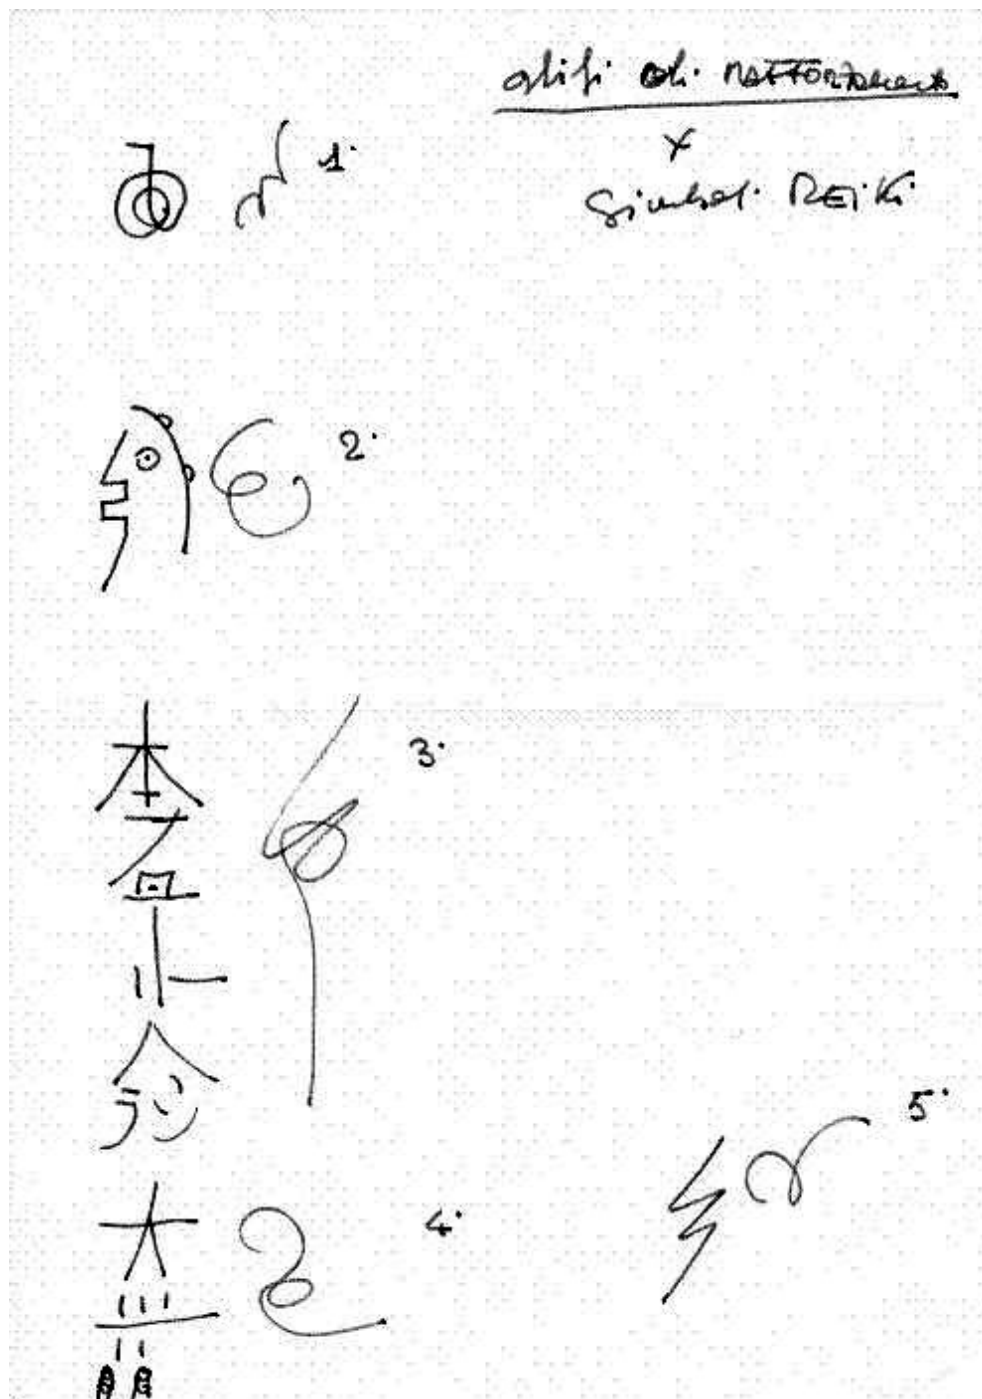 glifi di RAFFORZAMENTO
x
Simboli REIKI
1.
2.
3.
4.
5.